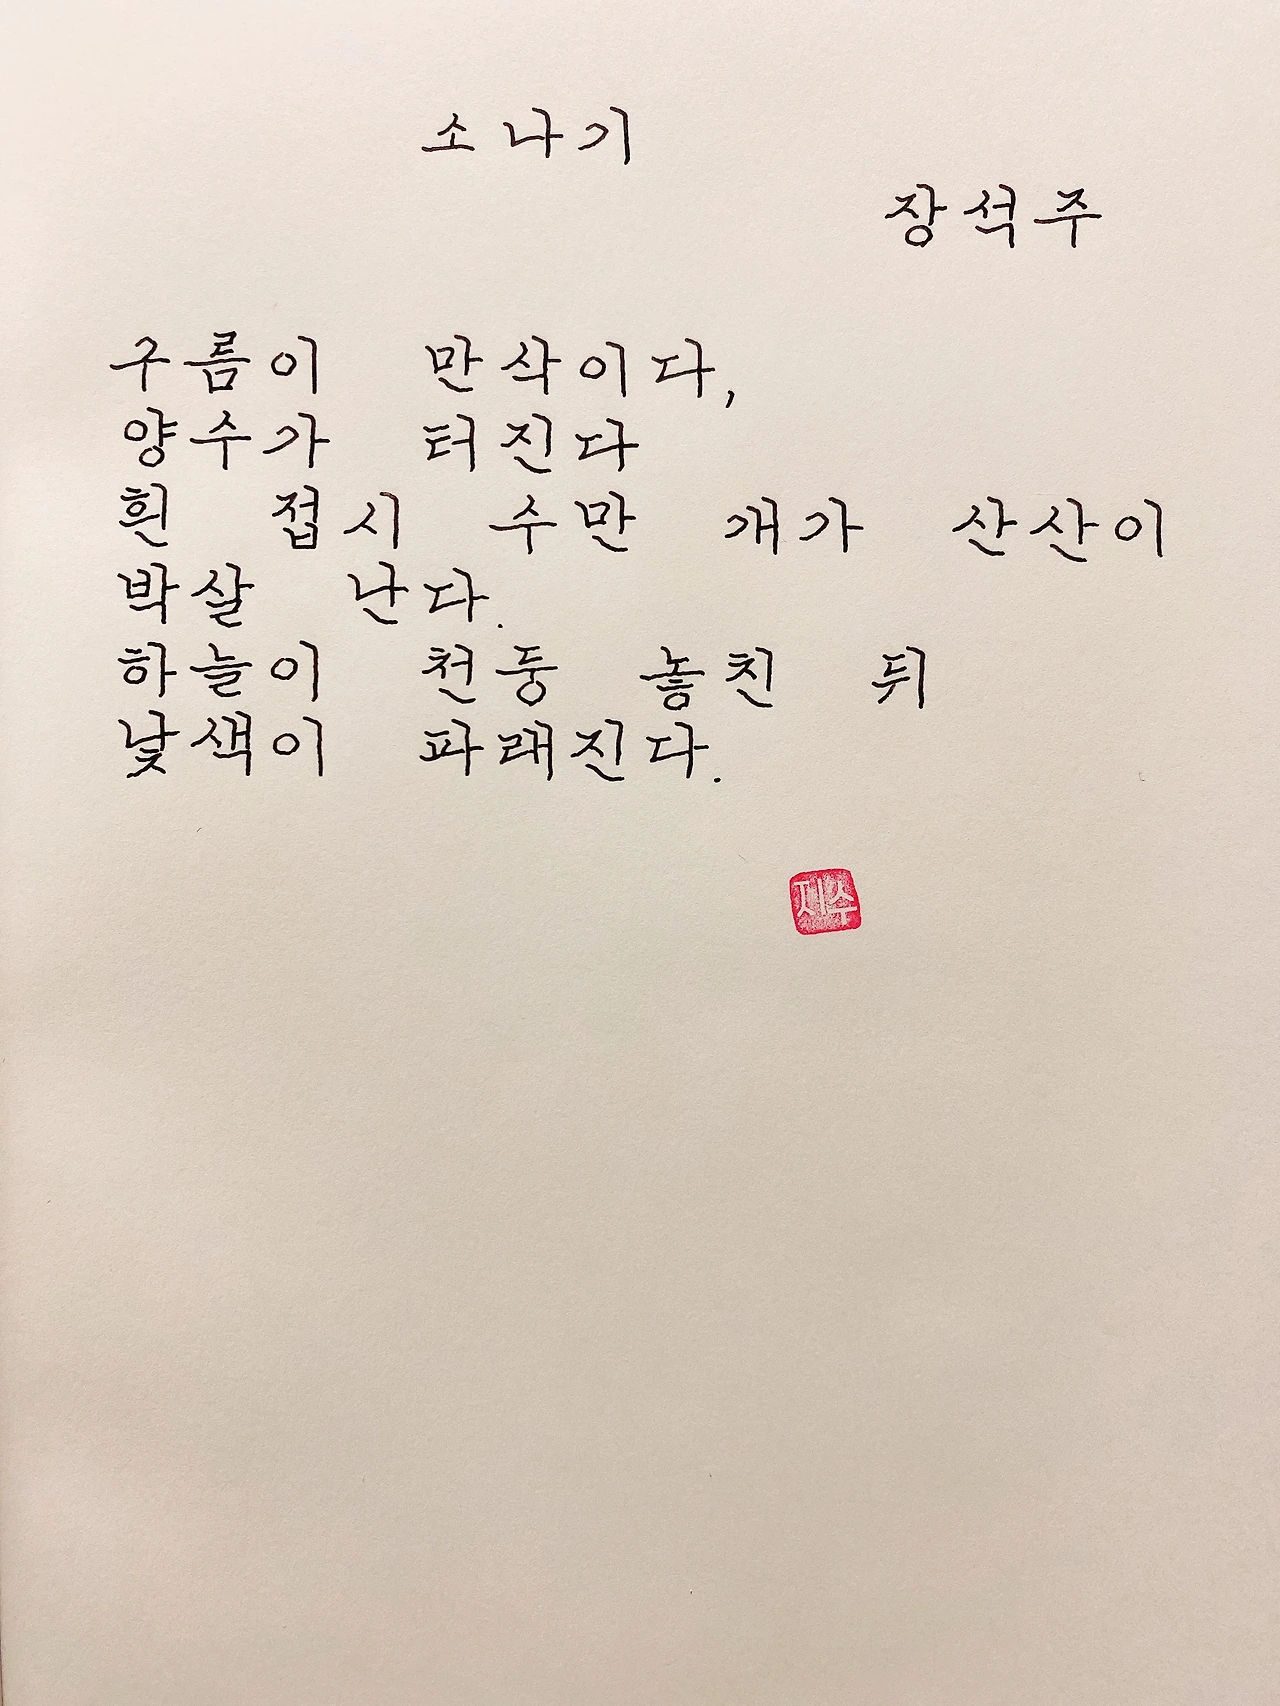 소나기
장석주
구름이 만삭이다,
양수가 터진다
흰 접시 수만 개가 산산이
박살 난다.
하늘이 천둥 놓친 뒤
낯색이 파래진다.
제수